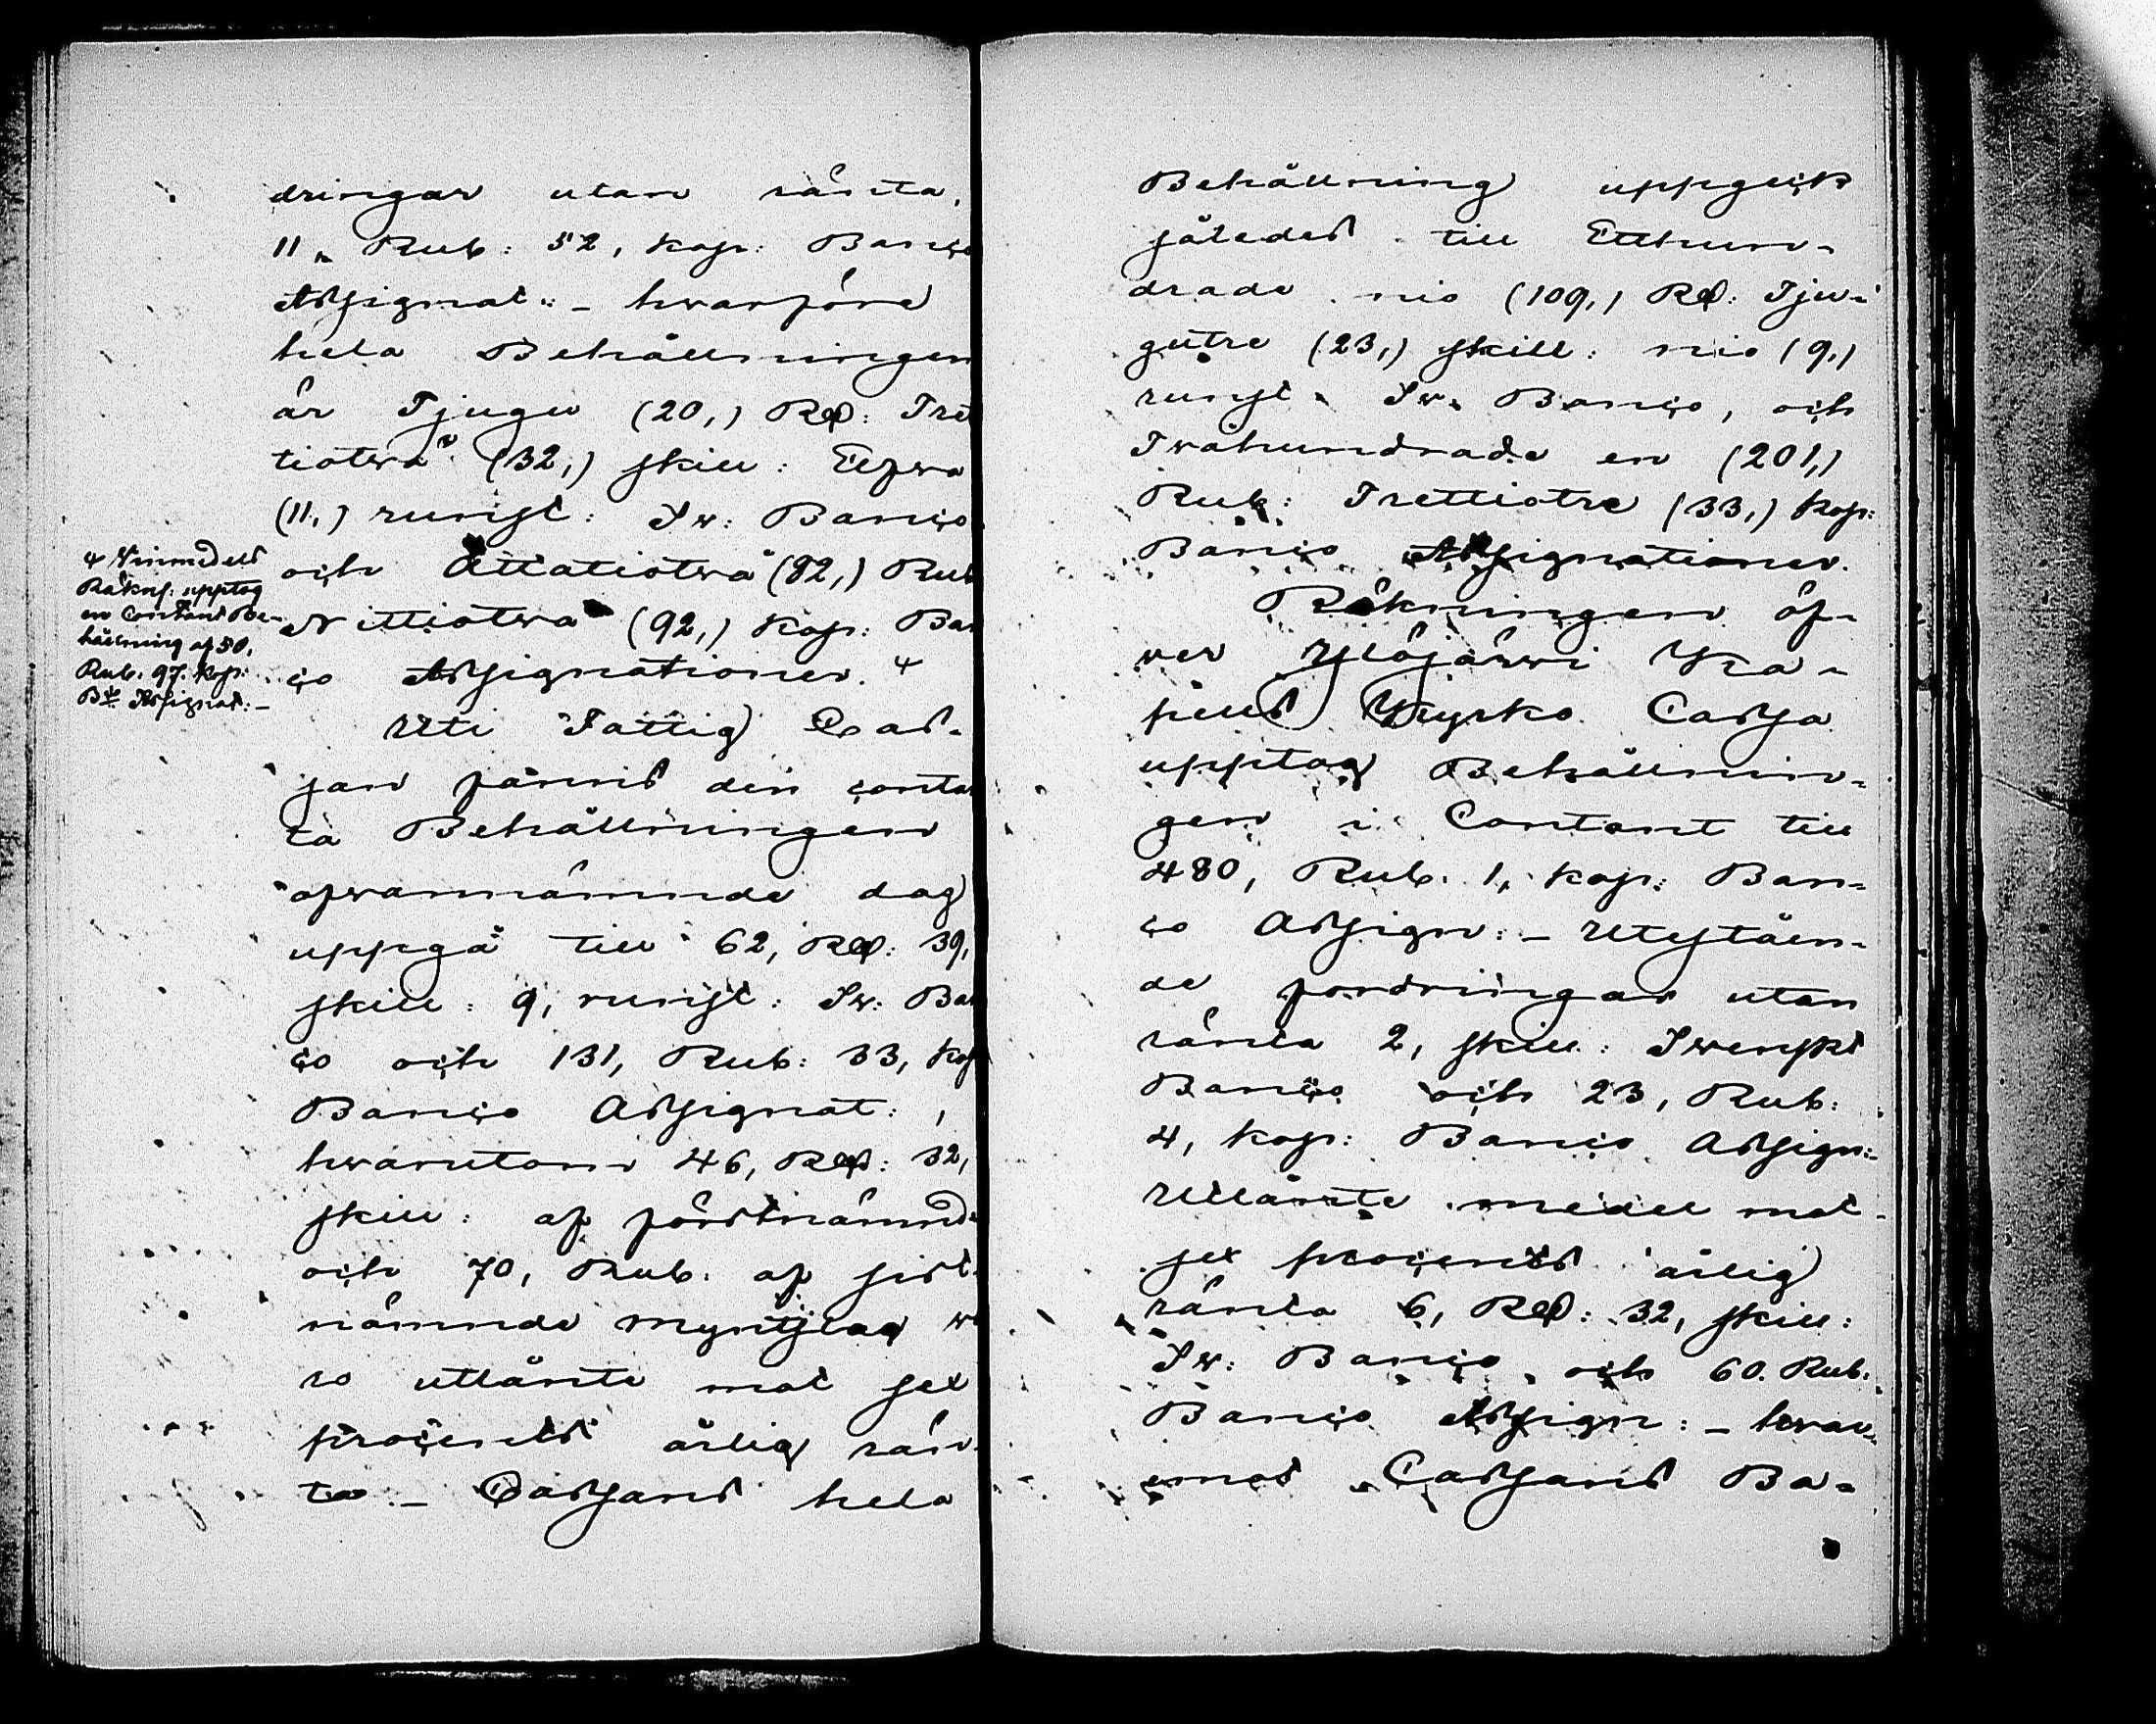 dringar utan ränta,
11, Rub: 52, kop: Banco
Assignat:- hwarföre
hela Behållningen
är Tjugu (20,) Rd: Tret
tiotwå (32,) skill: Elfwa
(11,) runst: Sw: Banco
och Åttatiotwå (82,) Rub
Nittiotwå (92,) kop: Ban
co Assignationer. +
+ Vinmedels
Räkng: upptog
en Contant Be-
hållning af 50,
Rub. 97. kop:
Bco Assignat:-
Uti Fattig Cas-
san fanns den conta
ta Behållningen
ofwannämnde dag
uppgå till 62, Rd: 39,
skill: 9, runst: Sw: Ban
co och 131, Rub: 33, kop
Banco Assignat:,
hwarutom 46, Rd: 32,
skill: af förstnämnde
och 70, Rub. af sist-
nämnde myntslag wo
ro utlänte mot sex
procents årlig rän-
ta.- Cassans hela
Behållning uppgick
således till Etthun-
drade nio (109,) Rd: Tju-
gutre (23,) skill: nio (9,)
runst. Sw. Banco, och
Twåhundrade en (201,)
Rub: Trettiotre (33,) kop:
Banco Assignationer.
Räkningen öf-
wer Ylöjärwi Ka-
pells Kyrko Cassa
upptog Behållnin-
gen i Contant till
480, Rub. 1, kop: Ban-
co Assign:- Utestäen-
de fordringar utan
ränta 2, skill: Swenskt
Banco och 23, Rub:
4, kop: Banco Assign:-
Utlänte medel mot
sex procents årlig
ränta 6, Rd: 32, skill:
Sw: Banco och 60. Rub:
Banco Assign:- hwar-
emot Cassans Ba-